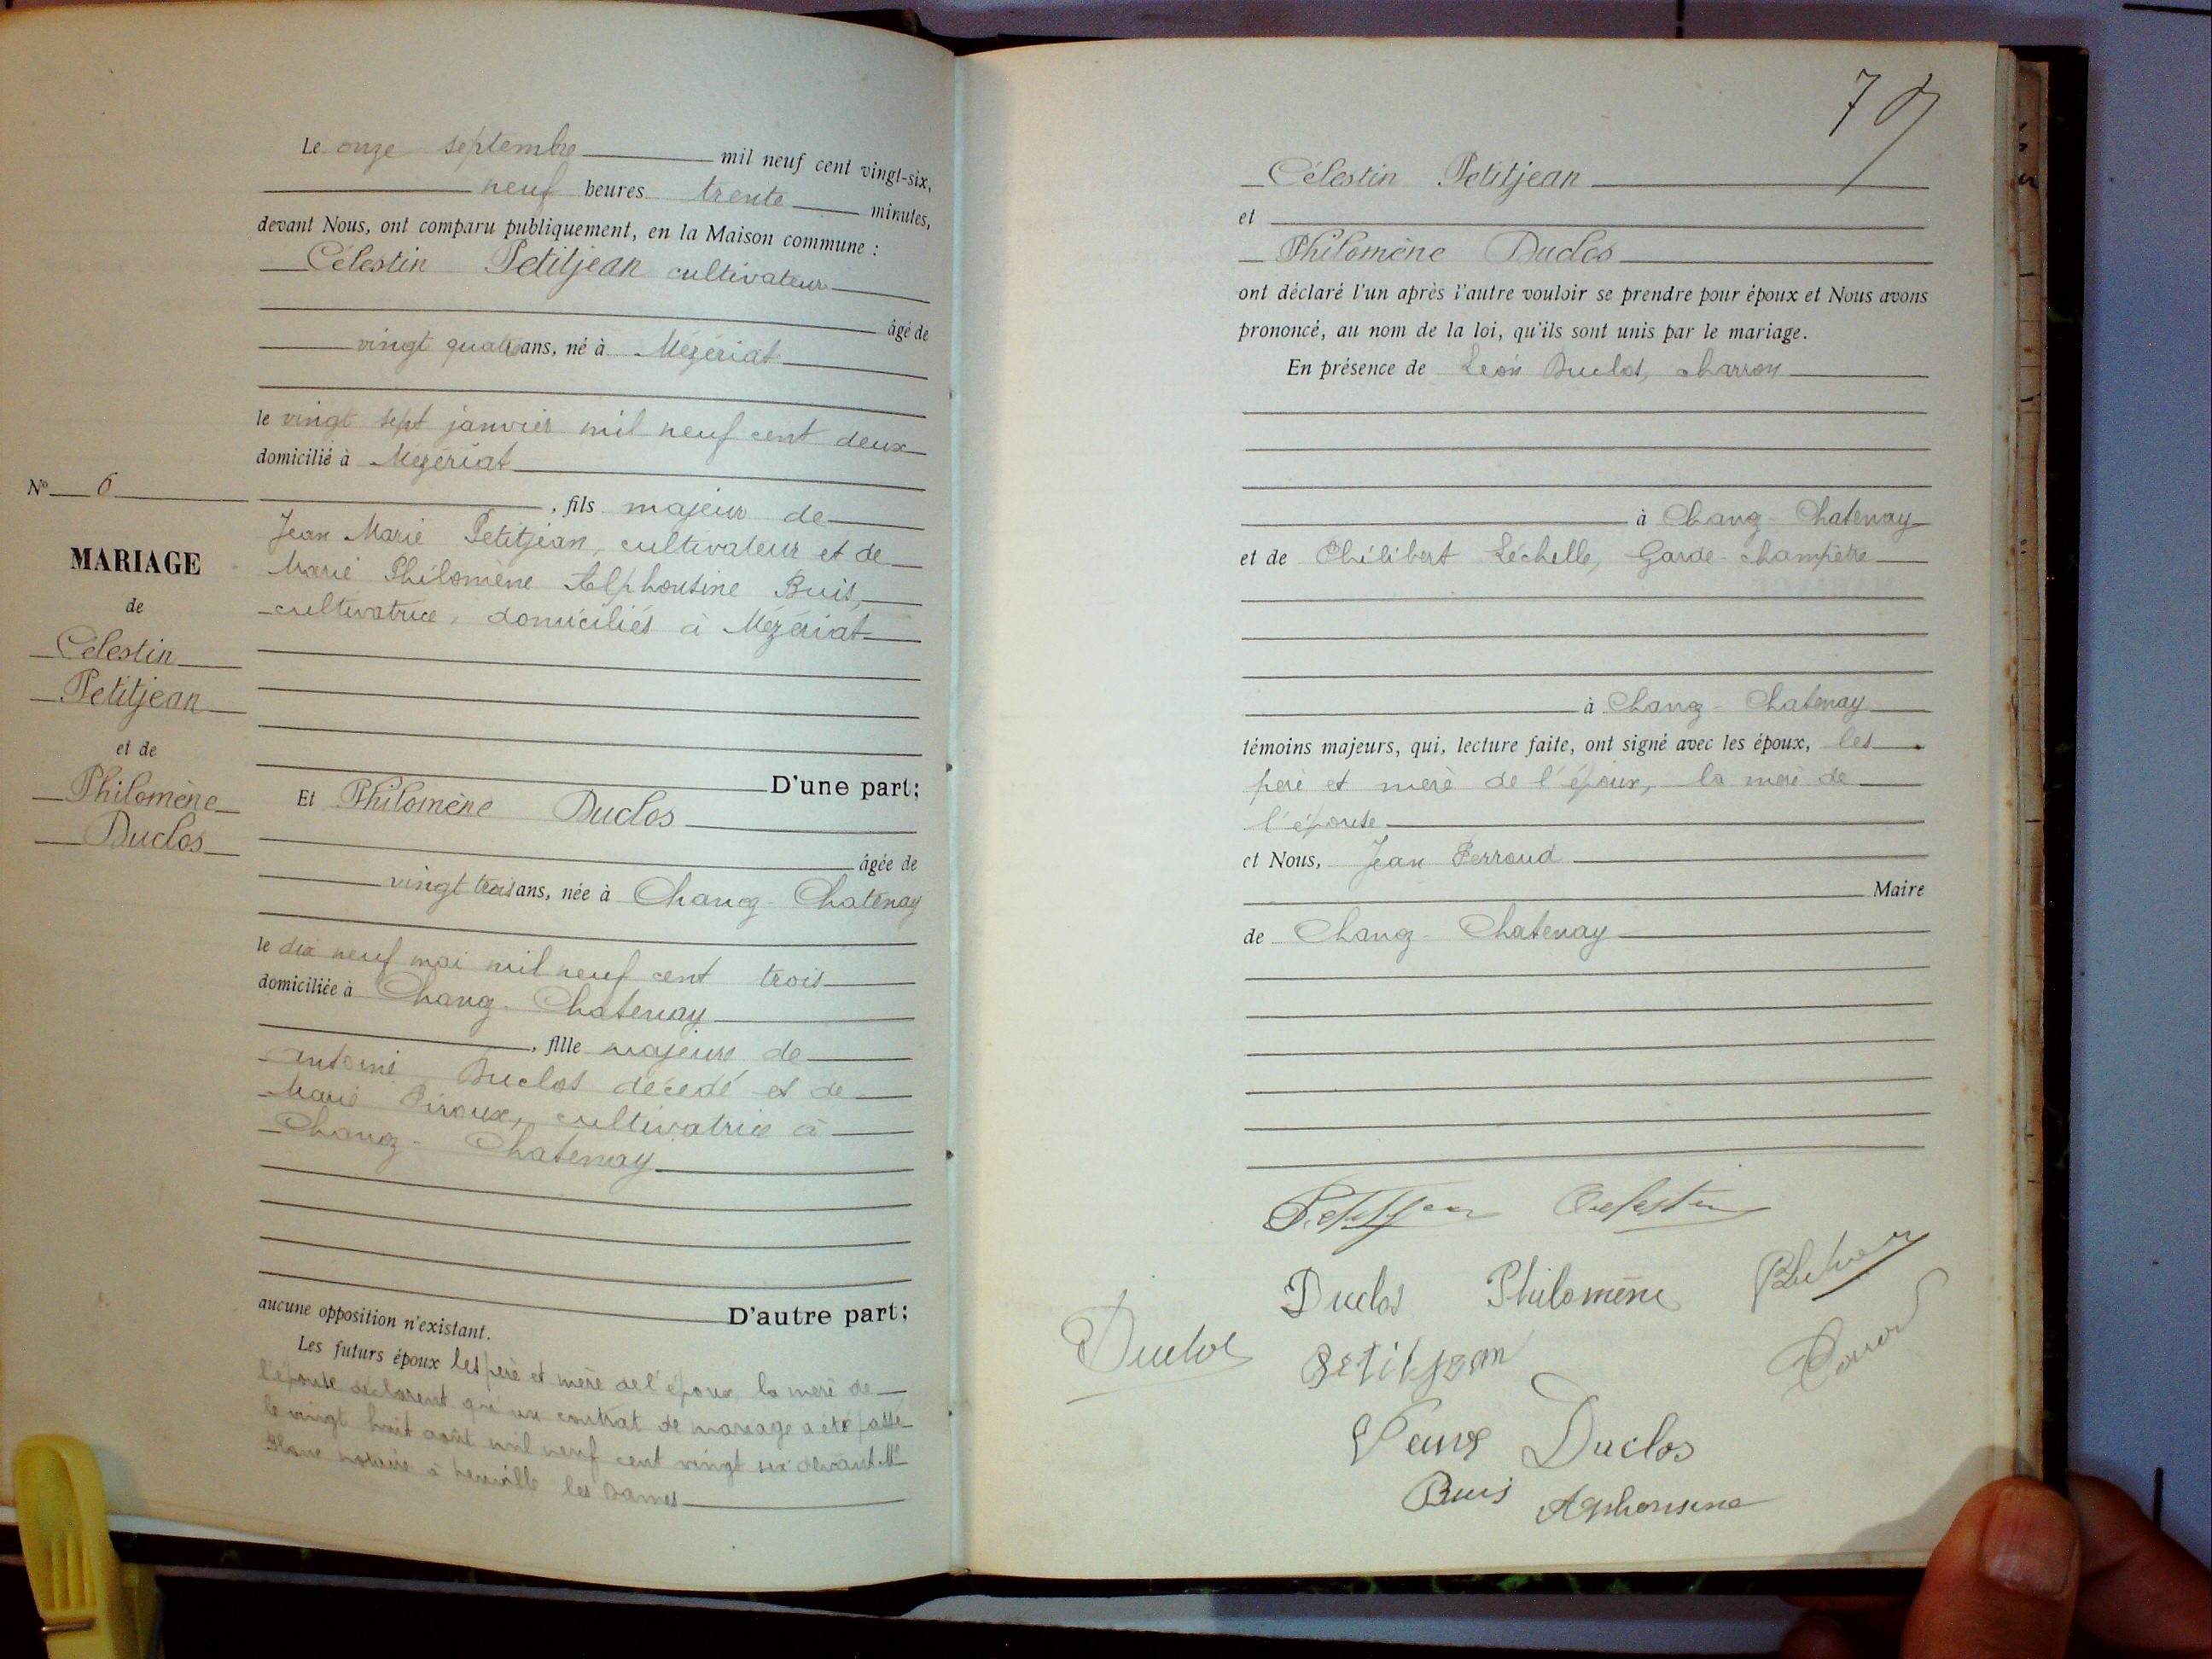 Le onze septembre mil neuf cent vingt-six,
neuf heures trente minutes,
devant Nous, ont comparu publiquement, en la Maison commune :
Célestin Petitjean cultivateur
âgé de
vingt quatre ans, né à Mézériat
le vingt sept janvier mil neuf cent deux
domicilié à Mézériat
, fils majeur de
Jean Marie Petitjean, cultivateur et de
Marie Philomène Alphonsine Buis,
cultivatrice, domiciliés à Mézériat
D'une part;
Et Philomène Duclos
âgée de
vingt trois ans, née à Chanoz-Chatenay
le dix neuf mai mil neuf cent trois
domiciliée à Chanoz-Chatenay
, fille majeure de
Antoine Duclos décédé et de
Marie Piroux, cultivatrice à
Chanoz-Chatenay
D'autre part;
aucune opposition n'existant.
Les futurs époux les père et mère de l'époux la mère de
l'épouse déclarent qu'un contrat de mariage a été passé
le vingt huit août mil neuf cent vingt six devant Me
Blanc notaire à Neuville les Dames
No 6
MARIAGE
de
Célestin
Petitjean
et de
Philomène
Duclos
Célestin Petitjean
et
Philomène Duclos
ont déclaré l'un après l'autre vouloir se prendre pour époux et Nous avons
prononcé, au nom de la loi, qu'ils sont unis par le mariage.
En présence de Léon Duclos, charron
à Chanoz-Chatenay
et de Philibert Léchelle, Garde-champêtre
à Chanoz-Chatenay
témoins majeurs, qui, lecture faite, ont signé avec les époux, les
père et mère de l'époux, la mère de
l'épouse
et Nous, Jean Perroud
Maire
de Chanoz-Chatenay
Petitjean Célestin
Duclos Philomène
Duclos Petitjean
Veuve Duclos
Buis Alphonsine